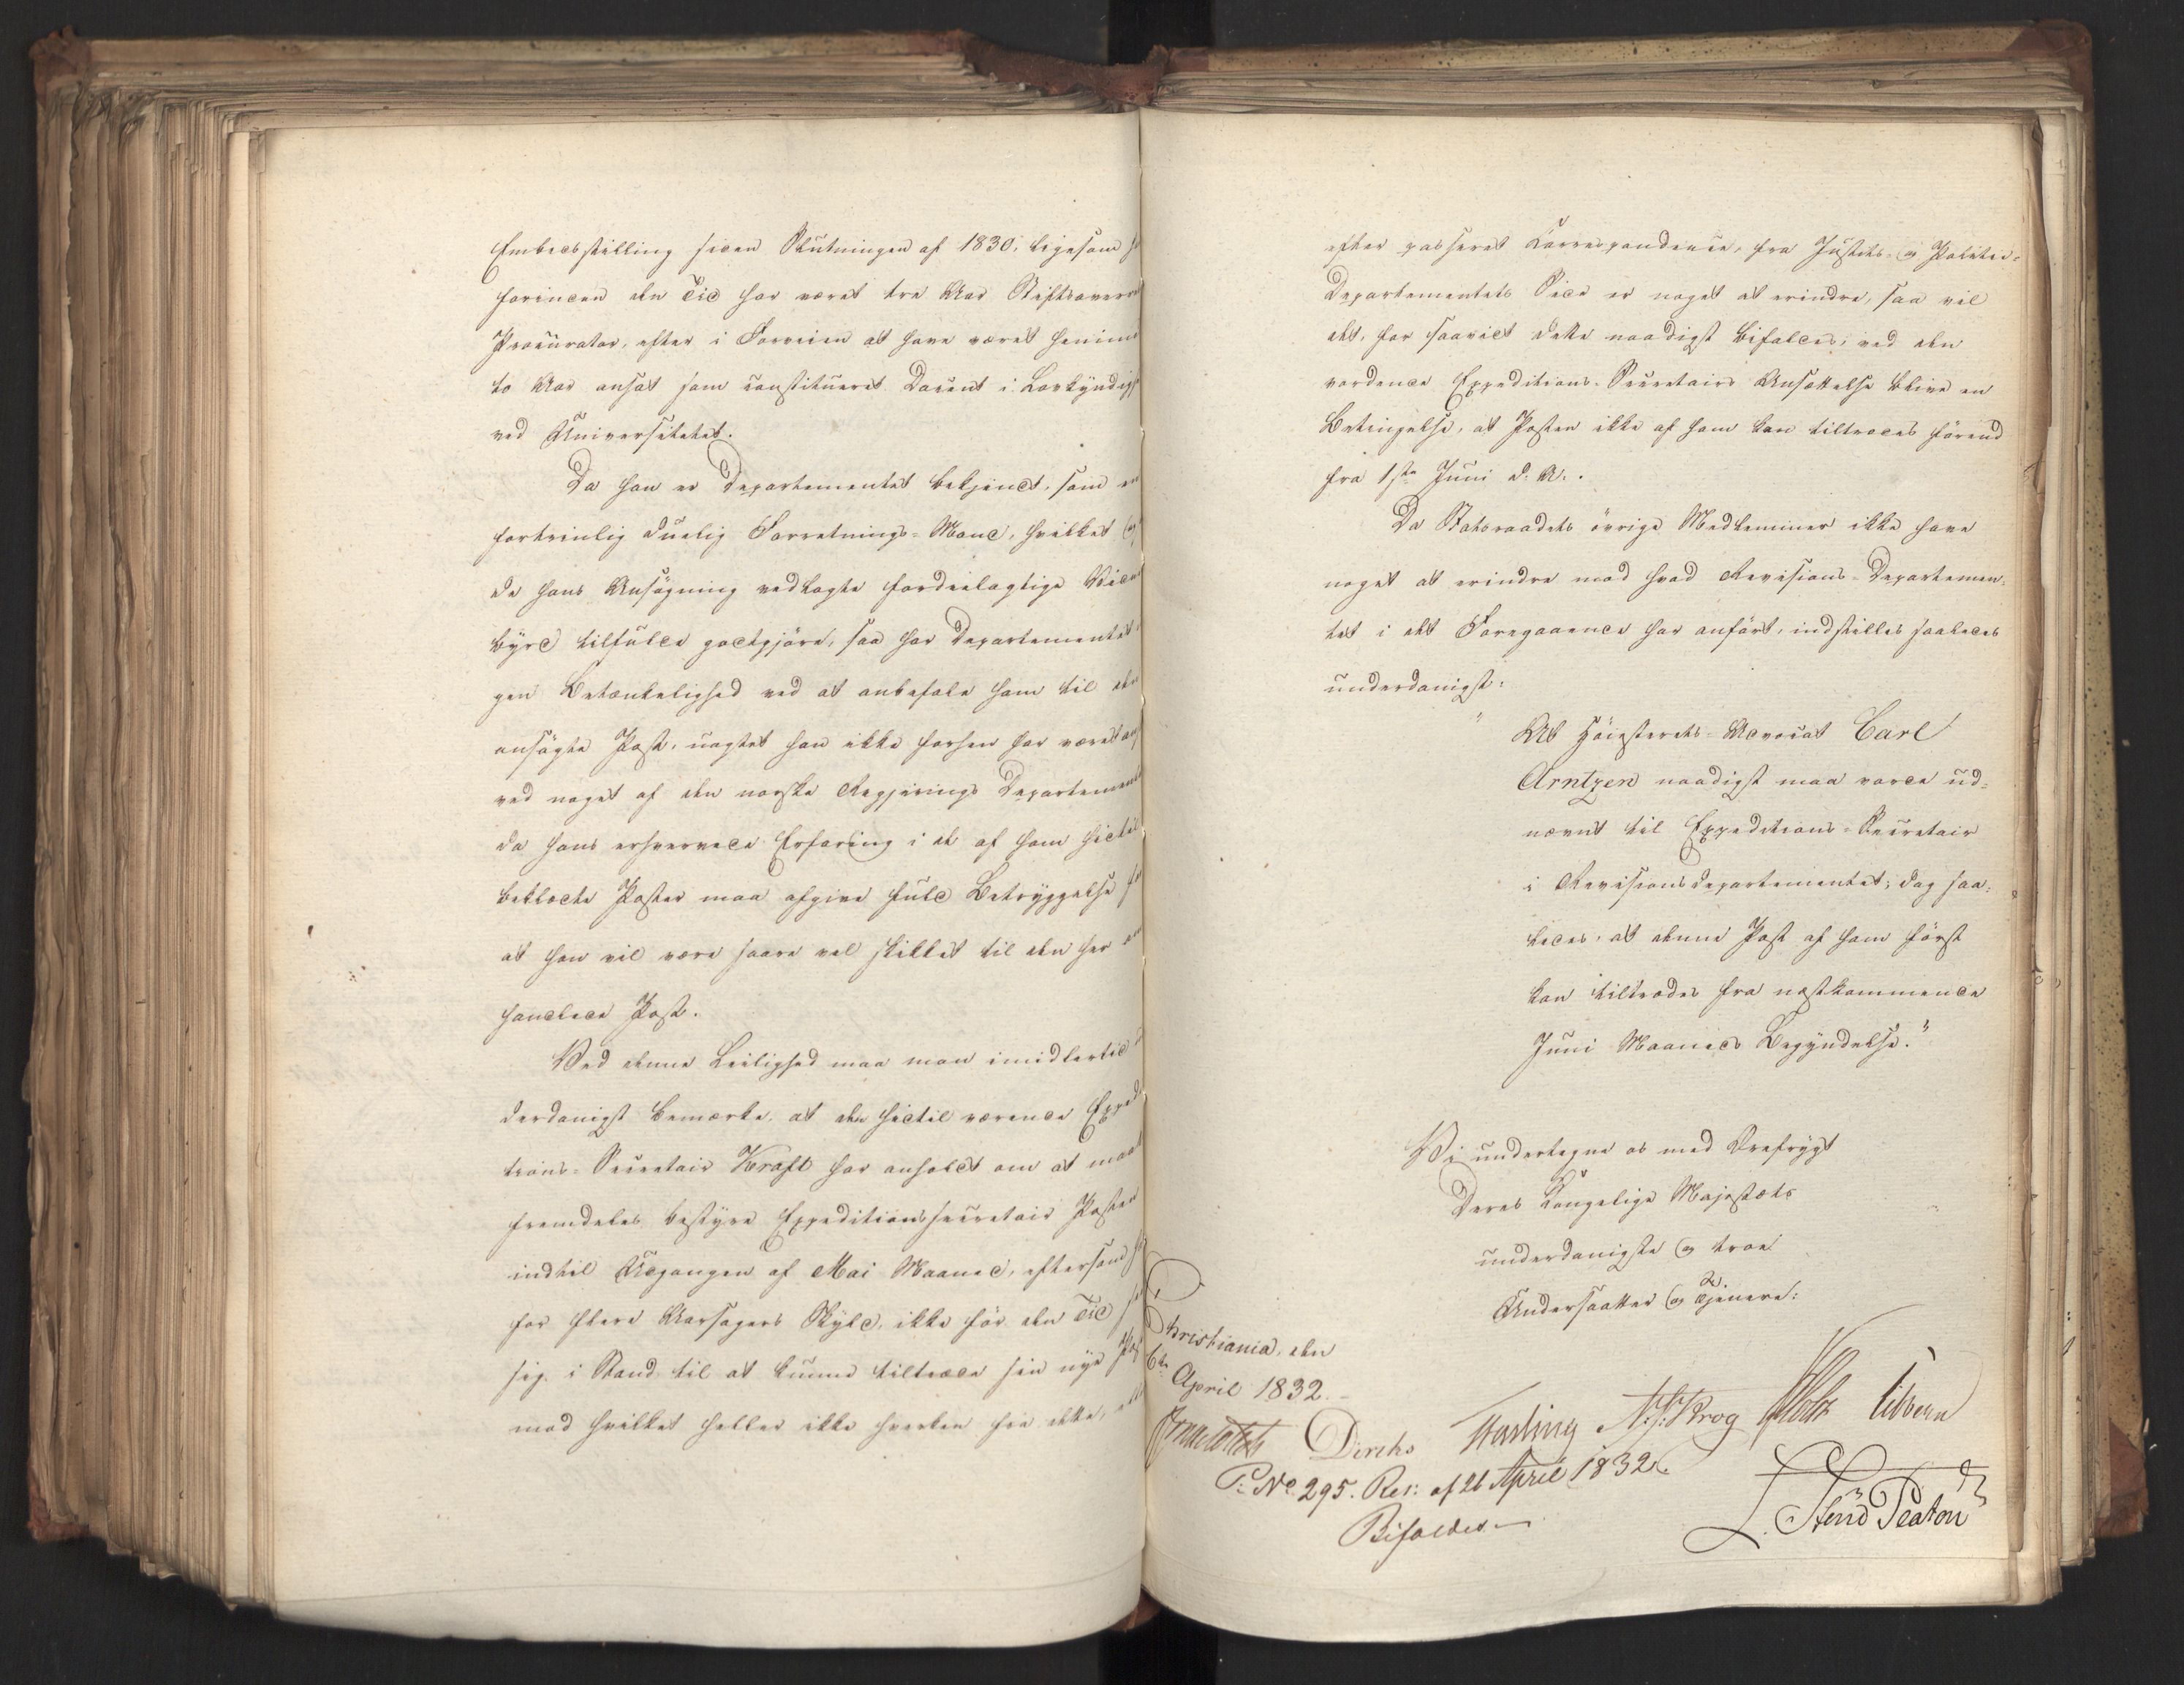 Embedsstilling siden Slutningen af 1830, ligesom
forinden den Tid har været tre Aar Stiftsoverrets
Procurator, efter i Forveien at have været henimod
to Aar ansat som constitueret Docent i Lovkyndighed
ved Universitetet.
Da han er Departementet bekjendt, som en
fortrinlig duelig Forretnings-Mand, hvilket og
de hans Ansøgning vedlagte fordeelagtige Vidnes-
byrd tilfulde godtgjøre, saa har Departementet
gen Betænkelighed ved at anbefale ham til den
ansøgte Post, uagtet han ikke forhen har været ansat
ved noget af den norske Regjerings Departementer
da hans erhvervede Erfaring i de af ham hidtil
beklædte Poster maa afgive fuld Betryggelse for
at han vil være saare vel skikket til den her om-
handlede Post.
Ved denne Leilighed maa man imidlertid
derdanigst bemærke, at den hidtil værende Expedi-
tions-Secretair Kraft har anholdt om at maatte
fremdeles bestyre Expeditionssecretair Posten
indtil Udgangen af Mai Maaned, eftersom
for flere Aarsagers Skyld, ikke før den Tid
sig i Stand til at kunne tiltræde sin nye Post
mod hvilket heller ikke hverken fra dette, eller
efter passeret Correspondence, fra Justits- og Politie-
Departementets Side er noget at erindre, saa vil
det, for saavidt dette naadigst bifaldes, ved den
vordende Expeditions-Secretairs Ansættelse blive en
Betingelse, at Posten ikke af ham kan tiltrædes förend
fra 1ste Juni d. A..
Da Statsraadets övrige Medlemmer ikke have
noget at erindre mod hvad Revisions-Departemen-
tet i det Foregaaende har anfört, indstilles saaledes
underdanigst:
"At Höiesterets-Advocat Carl
Arntzen naadigst maa vorde ud-
nævnt til Expeditions-Secretair
i Revisionsdepartementet; dog saa-
ledes, at denne Post af ham först
kan tiltrædes fra næstkommende
Juni Maaneds Begyndelse."
Vi undertegne os med Ærefrygt
Deres Kongelige Majestæts
underdanigste og troe
Undersaatter og Tjenere:
Christiania, den
6te April 1832.
Diriks Harling N: J: Krog Holst Vibbern
P: No 295. Res: af 21 April 1832.
Bifaldes